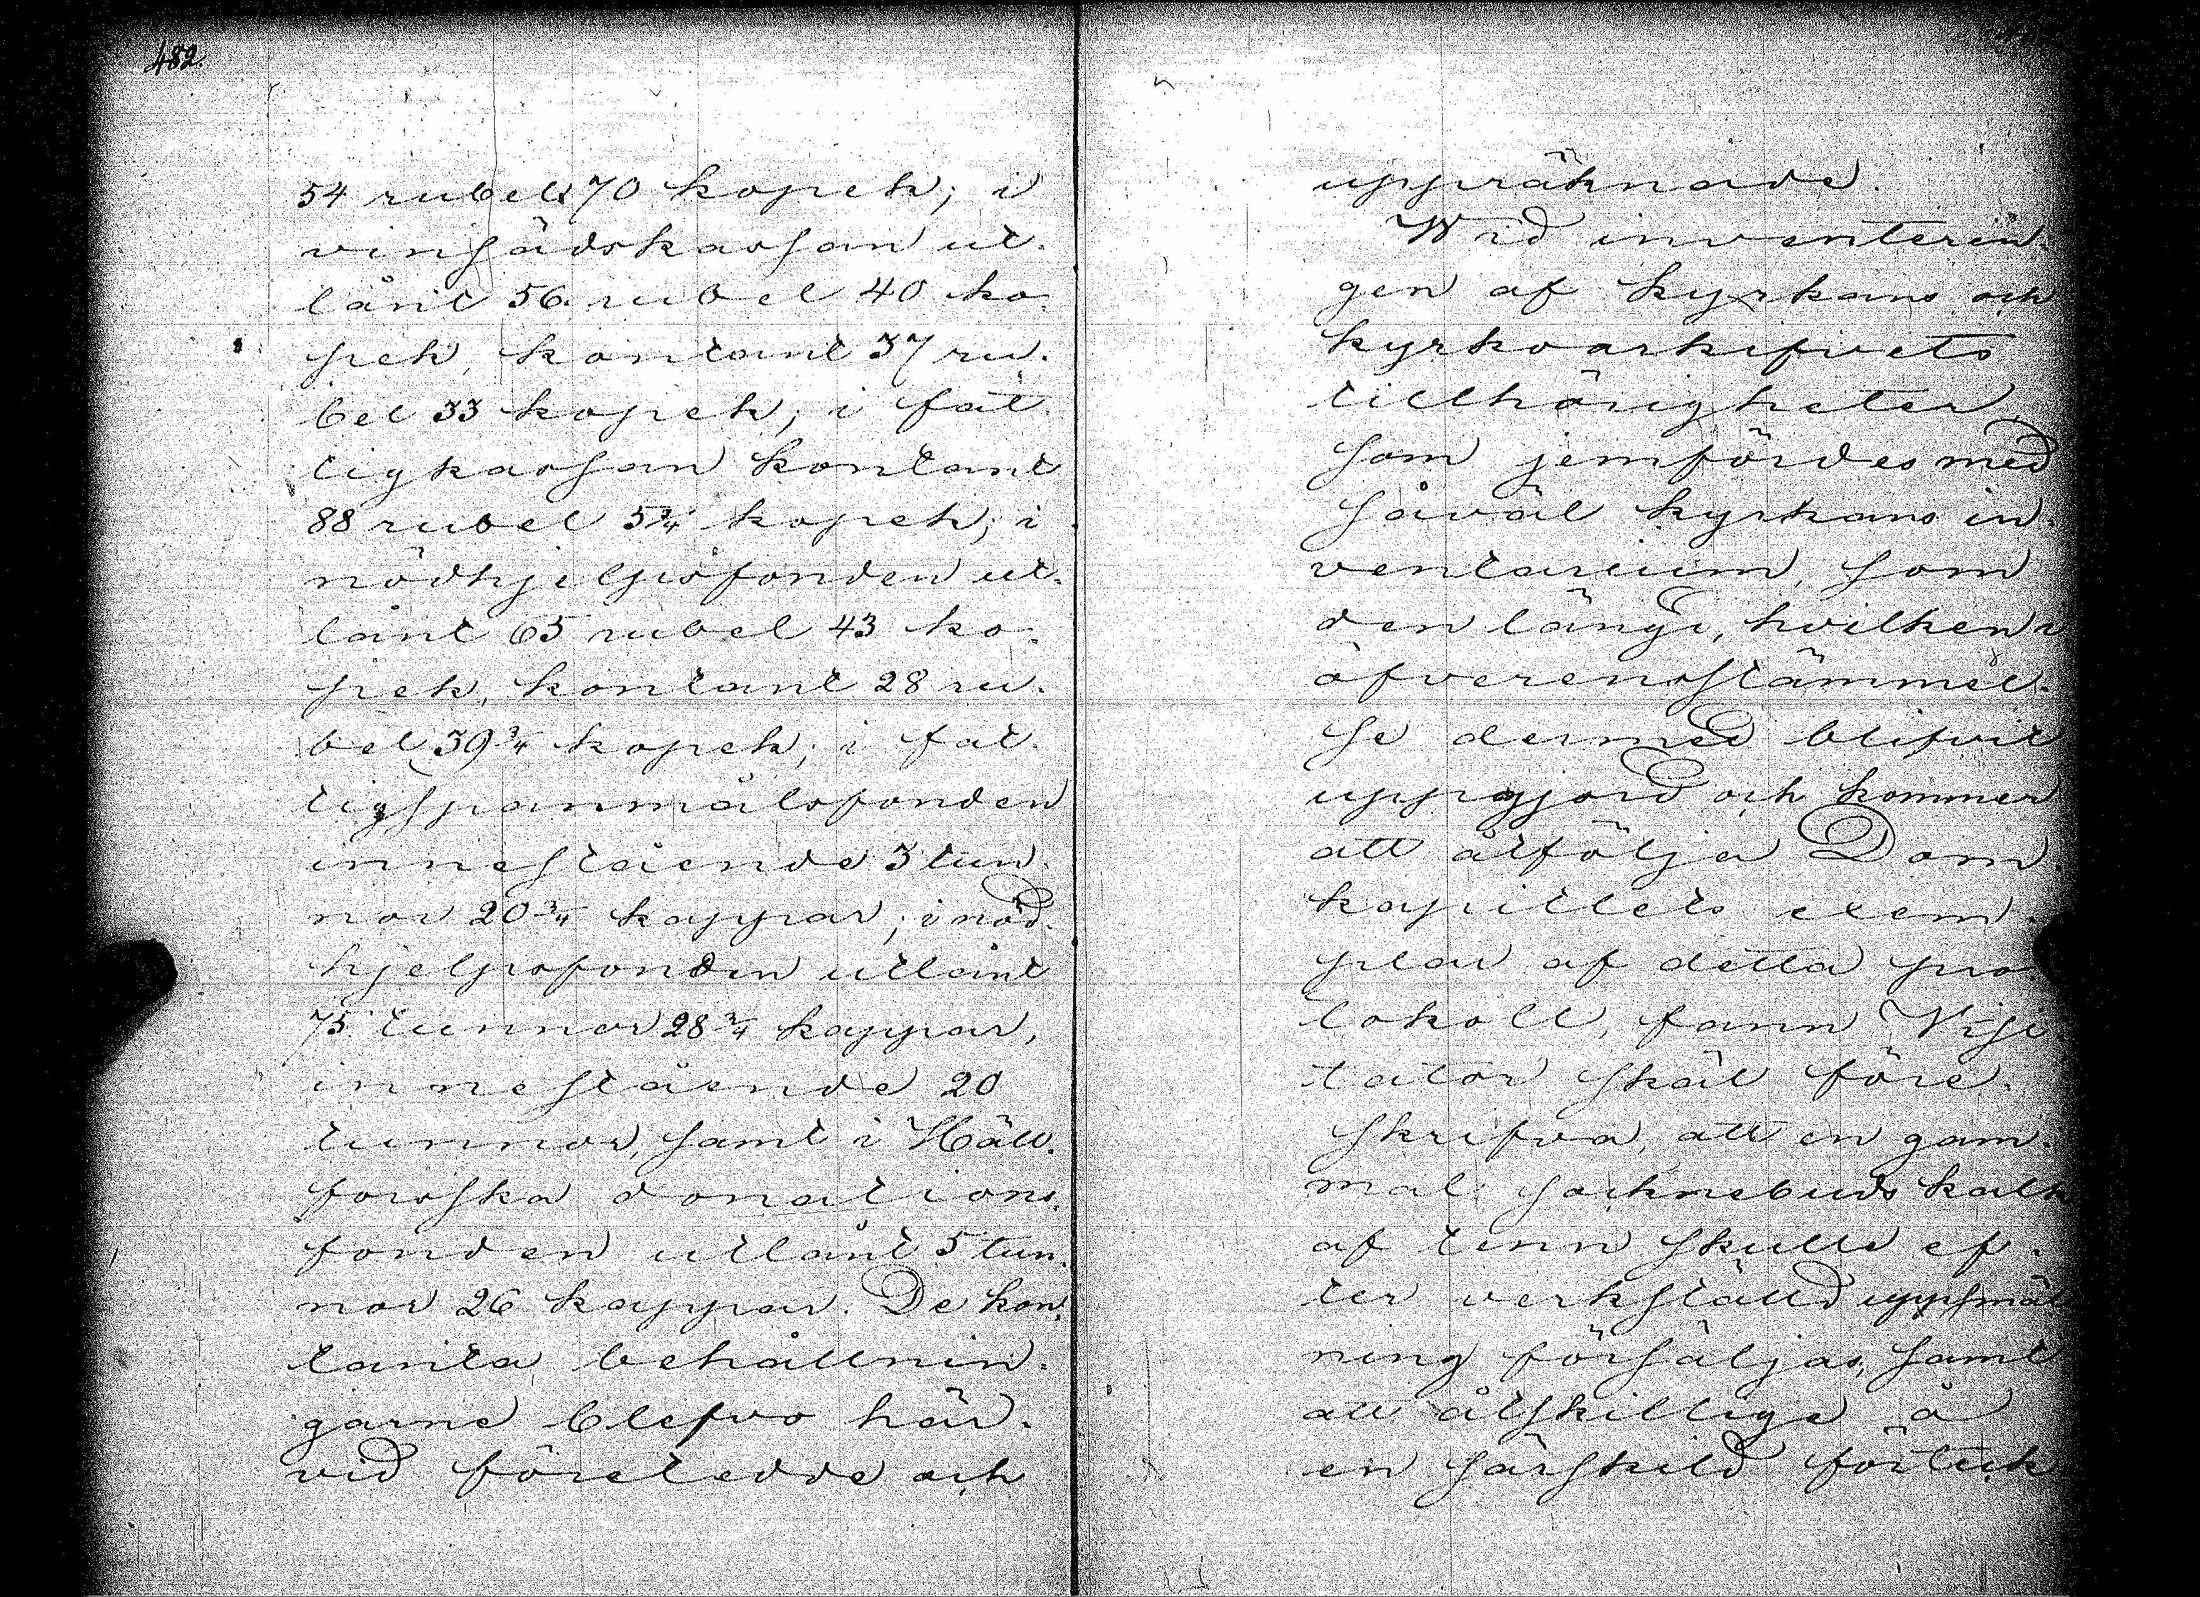 482.
54 rubel 70 kopek; i
vinsädskassan ut-
lånt 56 rubel 40 ko-
pek, kontant 37 ru-
bel 33 kopek; i fat-
tigkassan kontant
88 rubel 5 3/4 kopek; i
nödhjelpsfonden ut-
lånt 65 rubel 43 ko-
pek, kontant 28 ru-
bel 39 3/4 kopek; i fat-
tigspanmålsfonden
innestående 3 tun-
nor 20 3/4 kappar; i nöd-
hjelpsfonden utlånt
75 tunnor 28 3/4 kappar,
innestående 20
tunnor, samt i Häll-
forsska donations-
fonden utlånt 5 tun-
nor 26 kappar. De kon-
tanta behållnin-
garne blefvo här-
vid företedde och
uppräknade.
Wid inventerin-
gen af kyrkans och
kyrkoarkifvets
tillhörigheter,
som jemfördes med
såväl kyrkans in-
ventarium, som
den längd, hvilken i
öfverensstämmel-
se dermed blifvit
uppgjord och kommer
att åtfölja Dom-
kapitlets exem-
plar af detta pro-
tokoll, fann Visi-
tator skäl före-
skrifva, att en gam-
mal socknebuds kalk
af tenn skulle ef-
ter verkställd uppsmält-
ning försäljas, samt
att åtskillige å
en särskild förteck-